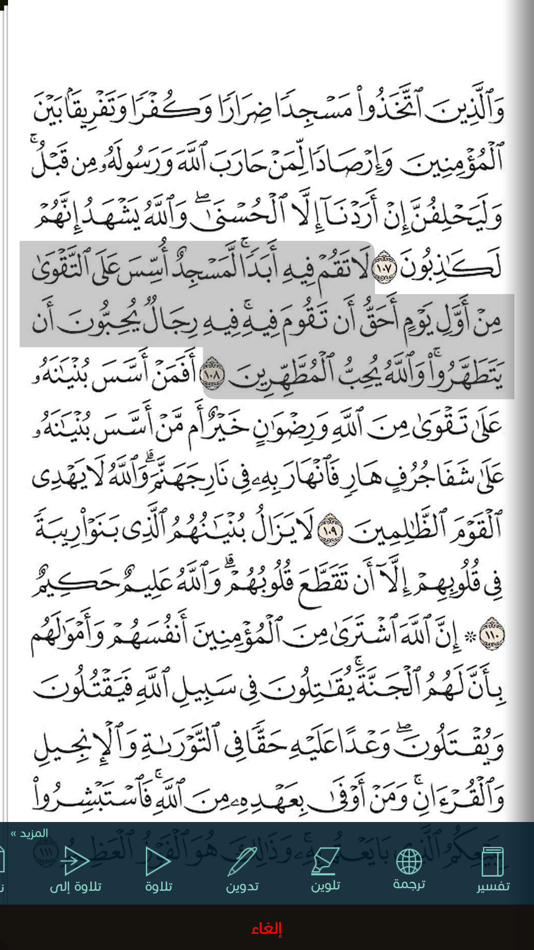 وَٱلَّذِينَ ٱتَّخَذُوا۟ مَسْجِدًا ضِرَارًا وَكُفْرًا وَتَفْرِيقًۢا بَيْنَ
ٱلْمُؤْمِنِينَ وَإِرْصَادًا لِّمَنْ حَارَبَ ٱللَّهَ وَرَسُولَهُۥ مِن قَبْلُ ۚ
وَلَيَحْلِفُنَّ إِنْ أَرَدْنَآ إِلَّا ٱلْحُسْنَىٰ ۖ وَٱللَّهُ يَشْهَدُ إِنَّهُمْ
لَكَـٰذِبُونَ ١٠٧ لَا تَقُمْ فِيهِ أَبَدًا ۚ لَّمَسْجِدٌ أُسِّسَ عَلَى ٱلتَّقْوَىٰ
مِنْ أَوَّلِ يَوْمٍ أَحَقُّ أَن تَقُومَ فِيهِ ۚ فِيهِ رِجَالٌ يُحِبُّونَ أَن
يَتَطَهَّرُوا۟ ۚ وَٱللَّهُ يُحِبُّ ٱلْمُطَّهِّرِينَ ١٠٨ أَفَمَنْ أَسَّسَ بُنْيَـٰنَهُۥ
عَلَىٰ تَقْوَىٰ مِنَ ٱللَّهِ وَرِضْوَٰنٍ خَيْرٌ أَم مَّنْ أَسَّسَ بُنْيَـٰنَهُۥ
عَلَىٰ شَفَا جُرُفٍ هَارٍ فَٱنْهَارَ بِهِۦ فِى نَارِ جَهَنَّمَ ۗ وَٱللَّهُ لَا يَهْدِى
ٱلْقَوْمَ ٱلظَّـٰلِمِينَ ١٠٩ لَا يَزَالُ بُنْيَـٰنُهُمُ ٱلَّذِى بَنَوْا۟ رِيبَةً
فِى قُلُوبِهِمْ إِلَّآ أَن تَقَطَّعَ قُلُوبُهُمْ ۗ وَٱللَّهُ عَلِيمٌ حَكِيمٌ
١١٠ ۞ إِنَّ ٱللَّهَ ٱشْتَرَىٰ مِنَ ٱلْمُؤْمِنِينَ أَنفُسَهُمْ وَأَمْوَٰلَهُم
بِأَنَّ لَهُمُ ٱلْجَنَّةَ ۚ يُقَـٰتِلُونَ فِى سَبِيلِ ٱللَّهِ فَيَقْتُلُونَ
وَيُقْتَلُونَ ۖ وَعْدًا عَلَيْهِ حَقًّا فِى ٱلتَّوْرَىٰةِ وَٱلْإِنجِيلِ
وَٱلْقُرْءَانِ ۚ وَمَنْ أَوْفَىٰ بِعَهْدِهِۦ مِنَ ٱللَّهِ ۚ فَٱسْتَبْشِرُوا۟
المزيد »
تفسير ترجمة تلوين تدوين تلاوة تلاوة إلى
إلغاء